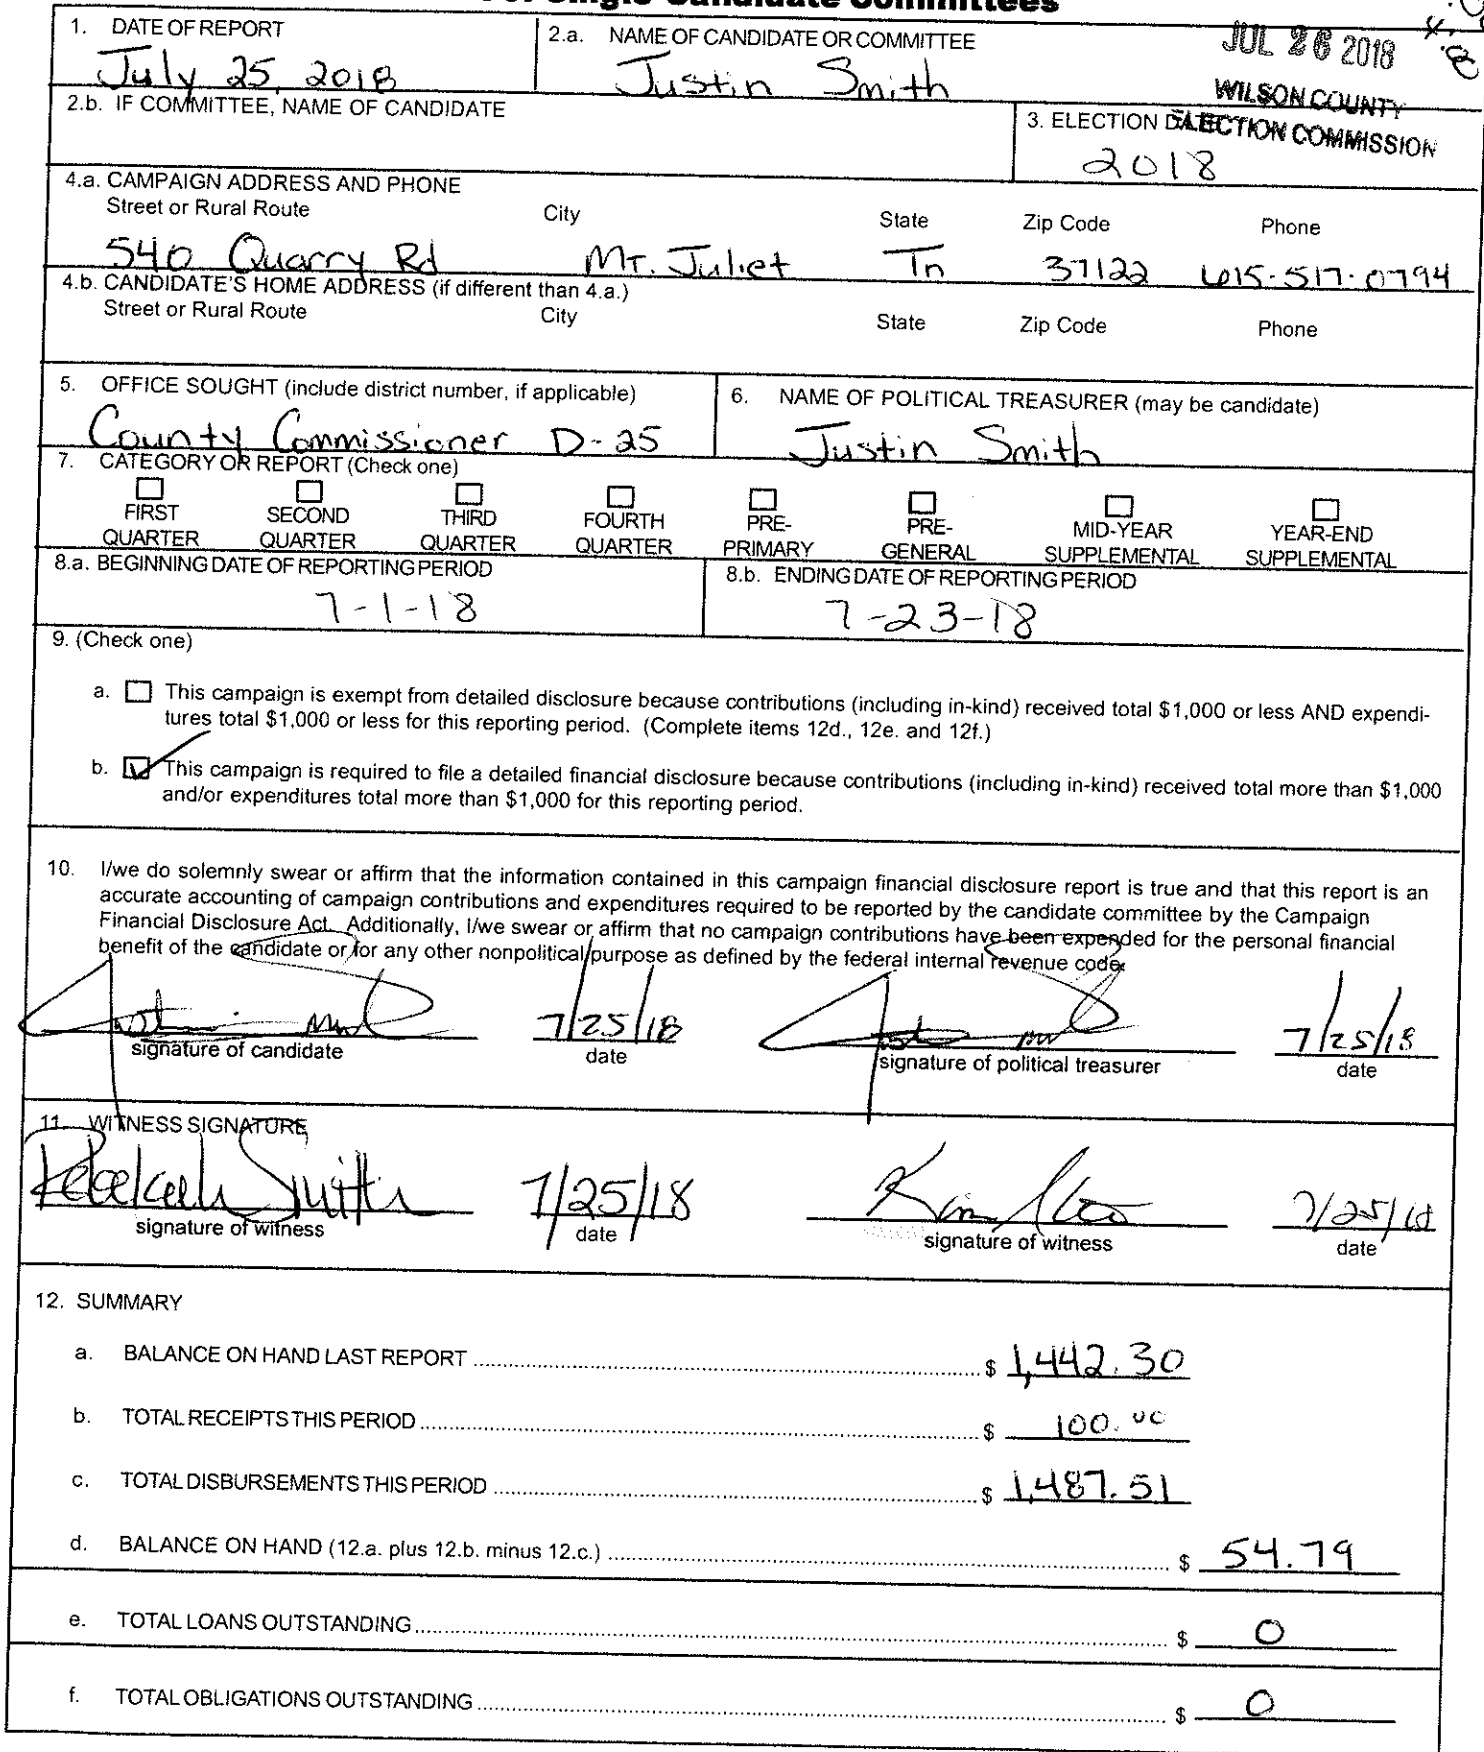 Single-Candidate Committees
1. DATE OF REPORT
July 25, 2018
2.a. NAME OF CANDIDATE OR COMMITTEE
Justin Smith
JUL 26 2018
WILSON COUNTY
ELECTION COMMISSION
2.b. IF COMMITTEE, NAME OF CANDIDATE
3. ELECTION
2018
4.a. CAMPAIGN ADDRESS AND PHONE
Street or Rural Route City State Zip Code Phone
540 Quarry Rd Mt. Juliet Tn 37122 615-517-0794
4.b. CANDIDATE'S HOME ADDRESS (if different than 4.a.)
Street or Rural Route City State Zip Code Phone
5. OFFICE SOUGHT (include district number, if applicable)
County Commissioner D-25
6. NAME OF POLITICAL TREASURER (may be candidate)
Justin Smith
7. CATEGORY OR REPORT (Check one)
FIRST QUARTER
SECOND QUARTER
THIRD QUARTER
FOURTH QUARTER
PRE-PRIMARY
PRE-GENERAL
MID-YEAR SUPPLEMENTAL
YEAR-END SUPPLEMENTAL
8.a. BEGINNING DATE OF REPORTING PERIOD
7-1-18
8.b. ENDING DATE OF REPORTING PERIOD
7-23-18
9. (Check one)
a. This campaign is exempt from detailed disclosure because contributions (including in-kind) received total $1,000 or less AND expendi-
tures total $1,000 or less for this reporting period. (Complete items 12d., 12e. and 12f.)
b. This campaign is required to file a detailed financial disclosure because contributions (including in-kind) received total more than $1,000
and/or expenditures total more than $1,000 for this reporting period.
10. I/we do solemnly swear or affirm that the information contained in this campaign financial disclosure report is true and that this report is an
accurate accounting of campaign contributions and expenditures required to be reported by the candidate committee by the Campaign
Financial Disclosure Act. Additionally, I/we swear or affirm that no campaign contributions have been expended for the personal financial
benefit of the candidate or for any other nonpolitical purpose as defined by the federal internal revenue code.
7/25/18 7/25/18
signature of candidate date signature of political treasurer date
11. WITNESS SIGNATURE
Rebekah Smith 7/25/18 7/25/18
signature of witness date signature of witness date
12. SUMMARY
a. BALANCE ON HAND LAST REPORT $ 1,442.30
b. TOTAL RECEIPTS THIS PERIOD $ 100.00
c. TOTAL DISBURSEMENTS THIS PERIOD $ 1,487.51
d. BALANCE ON HAND (12.a. plus 12.b. minus 12.c.) $ 54.79
e. TOTAL LOANS OUTSTANDING $ 0
f. TOTAL OBLIGATIONS OUTSTANDING $ 0